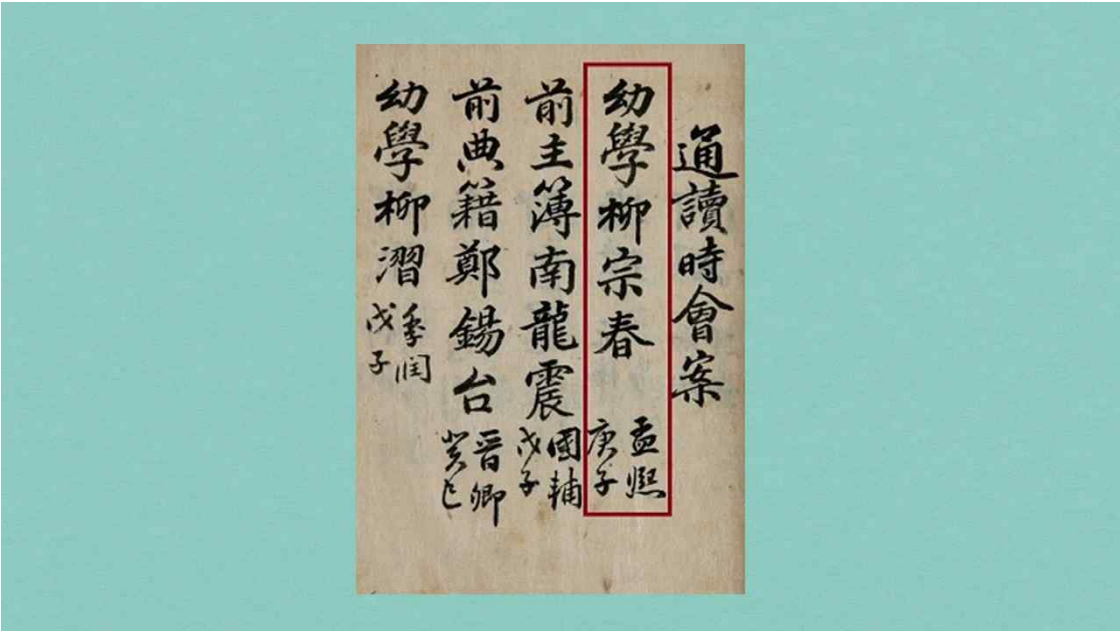 通讀時會案
幼學柳宗春 孟熙 庚子
前主簿南龍震 國輔 戊子
前典籍鄭錫台 晋卿 癸巳
幼學柳漝 季潤 戊子